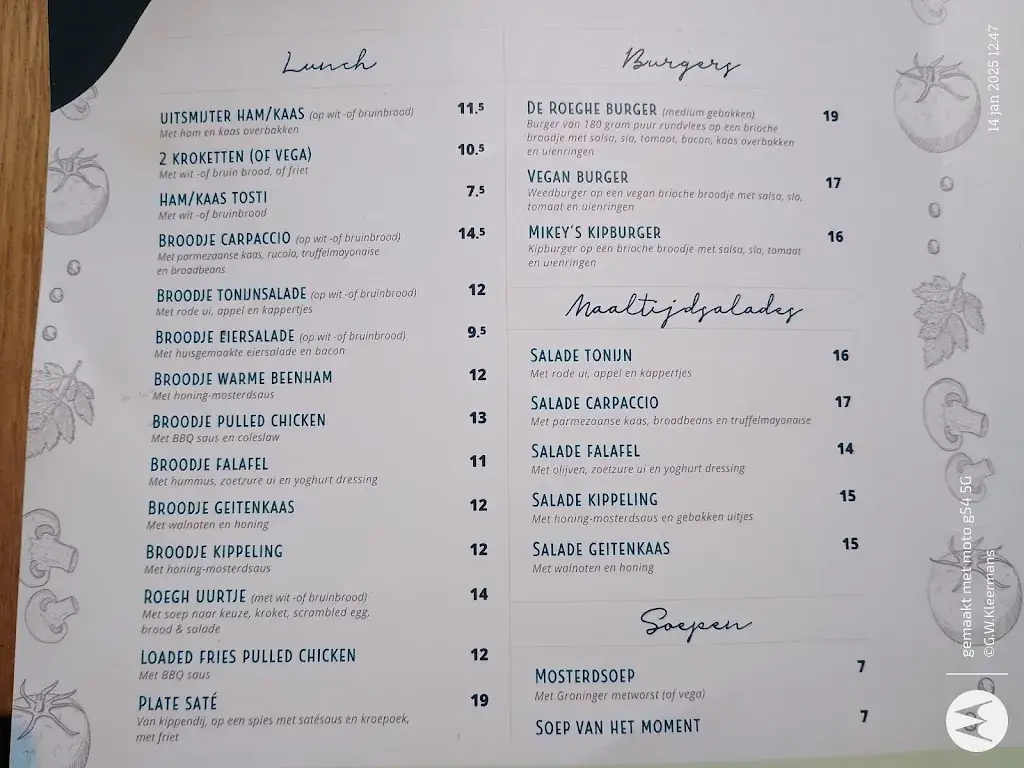 Lunch
UITSMIJTER HAM/KAAS (op wit -of bruinbrood) 11.5
Met ham en kaas overbakken
2 KROKETTEN (OF VEGA) 10.5
Met wit -of bruin brood, of friet
HAM/KAAS TOSTI 7.5
Met wit -of bruinbrood
BROODJE CARPACCIO (op wit -of bruinbrood) 14.5
Met parmezaanse kaas, rucola, truffelmayonaise
en broadbeans
BROODJE TONIJNSALADE (op wit -of bruinbrood) 12
Met rode ui, appel en kappertjes
BROODJE EIERSALADE (op wit -of bruinbrood) 9.5
Met huisgemaakte eiersalade en bacon
BROODJE WARME BEENHAM 12
Met honing-mosterdsaus
BROODJE PULLED CHICKEN 13
Met BBQ saus en coleslaw
BROODJE FALAFEL 11
Met hummus, zoetzure ui en yoghurt dressing
BROODJE GEITENKAAS 12
Met walnoten en honing
BROODJE KIPPELING 12
Met honing-mosterdsaus
ROEGH UURTJE (met wit -of bruinbrood) 14
Met soep naar keuze, kroket, scrambled egg,
brood & salade
LOADED FRIES PULLED CHICKEN 12
Met BBQ saus
PLATE SATÉ 19
Van kippendij, op een spies met satésaus en kroepoek,
met friet
Burgers
DE ROEGHE BURGER (medium gebakken) 19
Burger van 180 gram puur rundvlees op een brioche
broodje met salsa, sla, tomaat, bacon, kaas overbakken
en uienringen
VEGAN BURGER 17
Weedburger op een vegan brioche broodje met salsa, sla,
tomaat en uienringen
MIKEY'S KIPBURGER 16
Kipburger op een brioche broodje met salsa, sla, tomaat
en uienringen
Maaltijdsalades
SALADE TONIJN 16
Met rode ui, appel en kappertjes
SALADE CARPACCIO 17
Met parmezaanse kaas, broadbeans en truffelmayonaise
SALADE FALAFEL 14
Met olijven, zoetzure ui en yoghurt dressing
SALADE KIPPELING 15
Met honing-mosterdsaus en gebakken uitjes
SALADE GEITENKAAS 15
Met walnoten en honing
Soepen
MOSTERDSOEP 7
Met Groninger metworst (of vega)
SOEP VAN HET MOMENT 7
14 jan 2025 12:47
gemaakt met moto g54 5G
©G.W.Kleermans